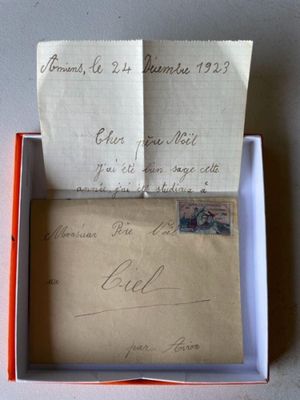 Amiens, le 24 Décembre 1923
Cher père Noël
J'ai été bien sage cette
année j'ai été studieux à
Monsieur Père Noël
au
Ciel
par Avion